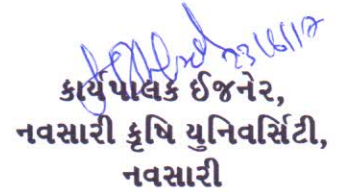 23/6/17
કાર્યપાલક ઈજનેર,
નવસારી કૃષિ યુનિવર્સિટી,
નવસારી